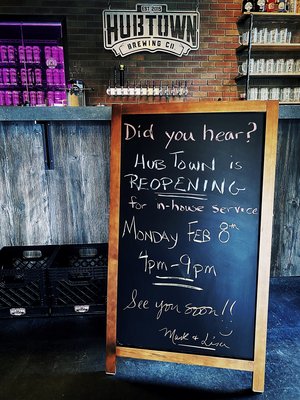 EST 2015
HUBTOWN
BREWING CO.
Did you hear?
HUB TOWN is
REOPENING
for in-house service
MONDAY FEB 8th
4pm-9pm
See you soon!!
Mark & Lisa